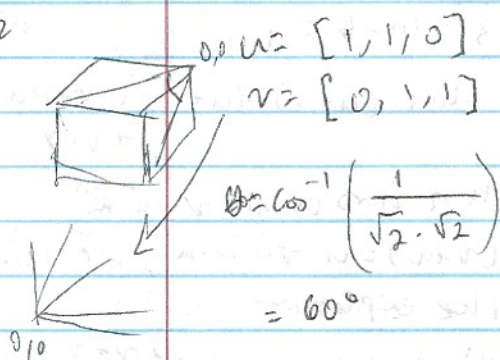 2
0,0 u = [1, 1, 0]
v = [0, 1, 1]
θ = cos⁻¹ (1 / √2 · √2)
= 60°
0,0